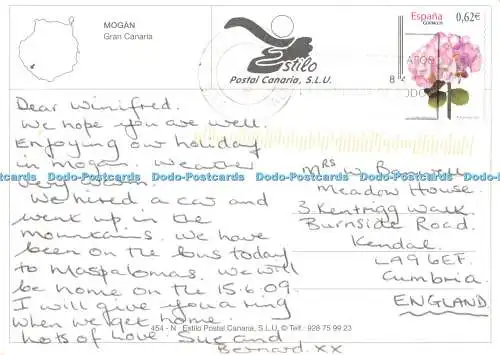 MOGÁN
Gran Canaria
Estilo
Postal Canaria, S.L.U.
España
CORREOS
0,62€
Dear Winifred.
We hope you are well.
Enjoying our holiday
in Mogan. Weather
very warm.
We hired a car and
went up in the
mountains. We have
been on the bus today
to Maspalomas. We will
be home on the 15.6.09.
I will give you a ring
when we get home.
Lots of Love. Sue and
Bernard. xx
Mrs W.
Meadow House.
3 Kentrigg Walk.
Burnside Road.
Kendal.
LA9 6EF.
Cumbria.
ENGLAND
454 - N Estilo Postal Canaria, S.L.U. © Telf.: 928 75 99 23
Dodo-Postcards Dodo-Postcards Dodo-Postcards Dodo-Postcards Dodo-Postcards